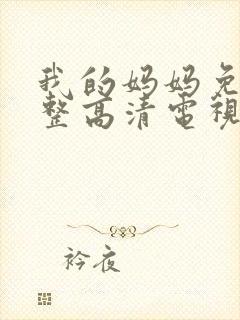 我的妈妈免
整高清電視
衿夜